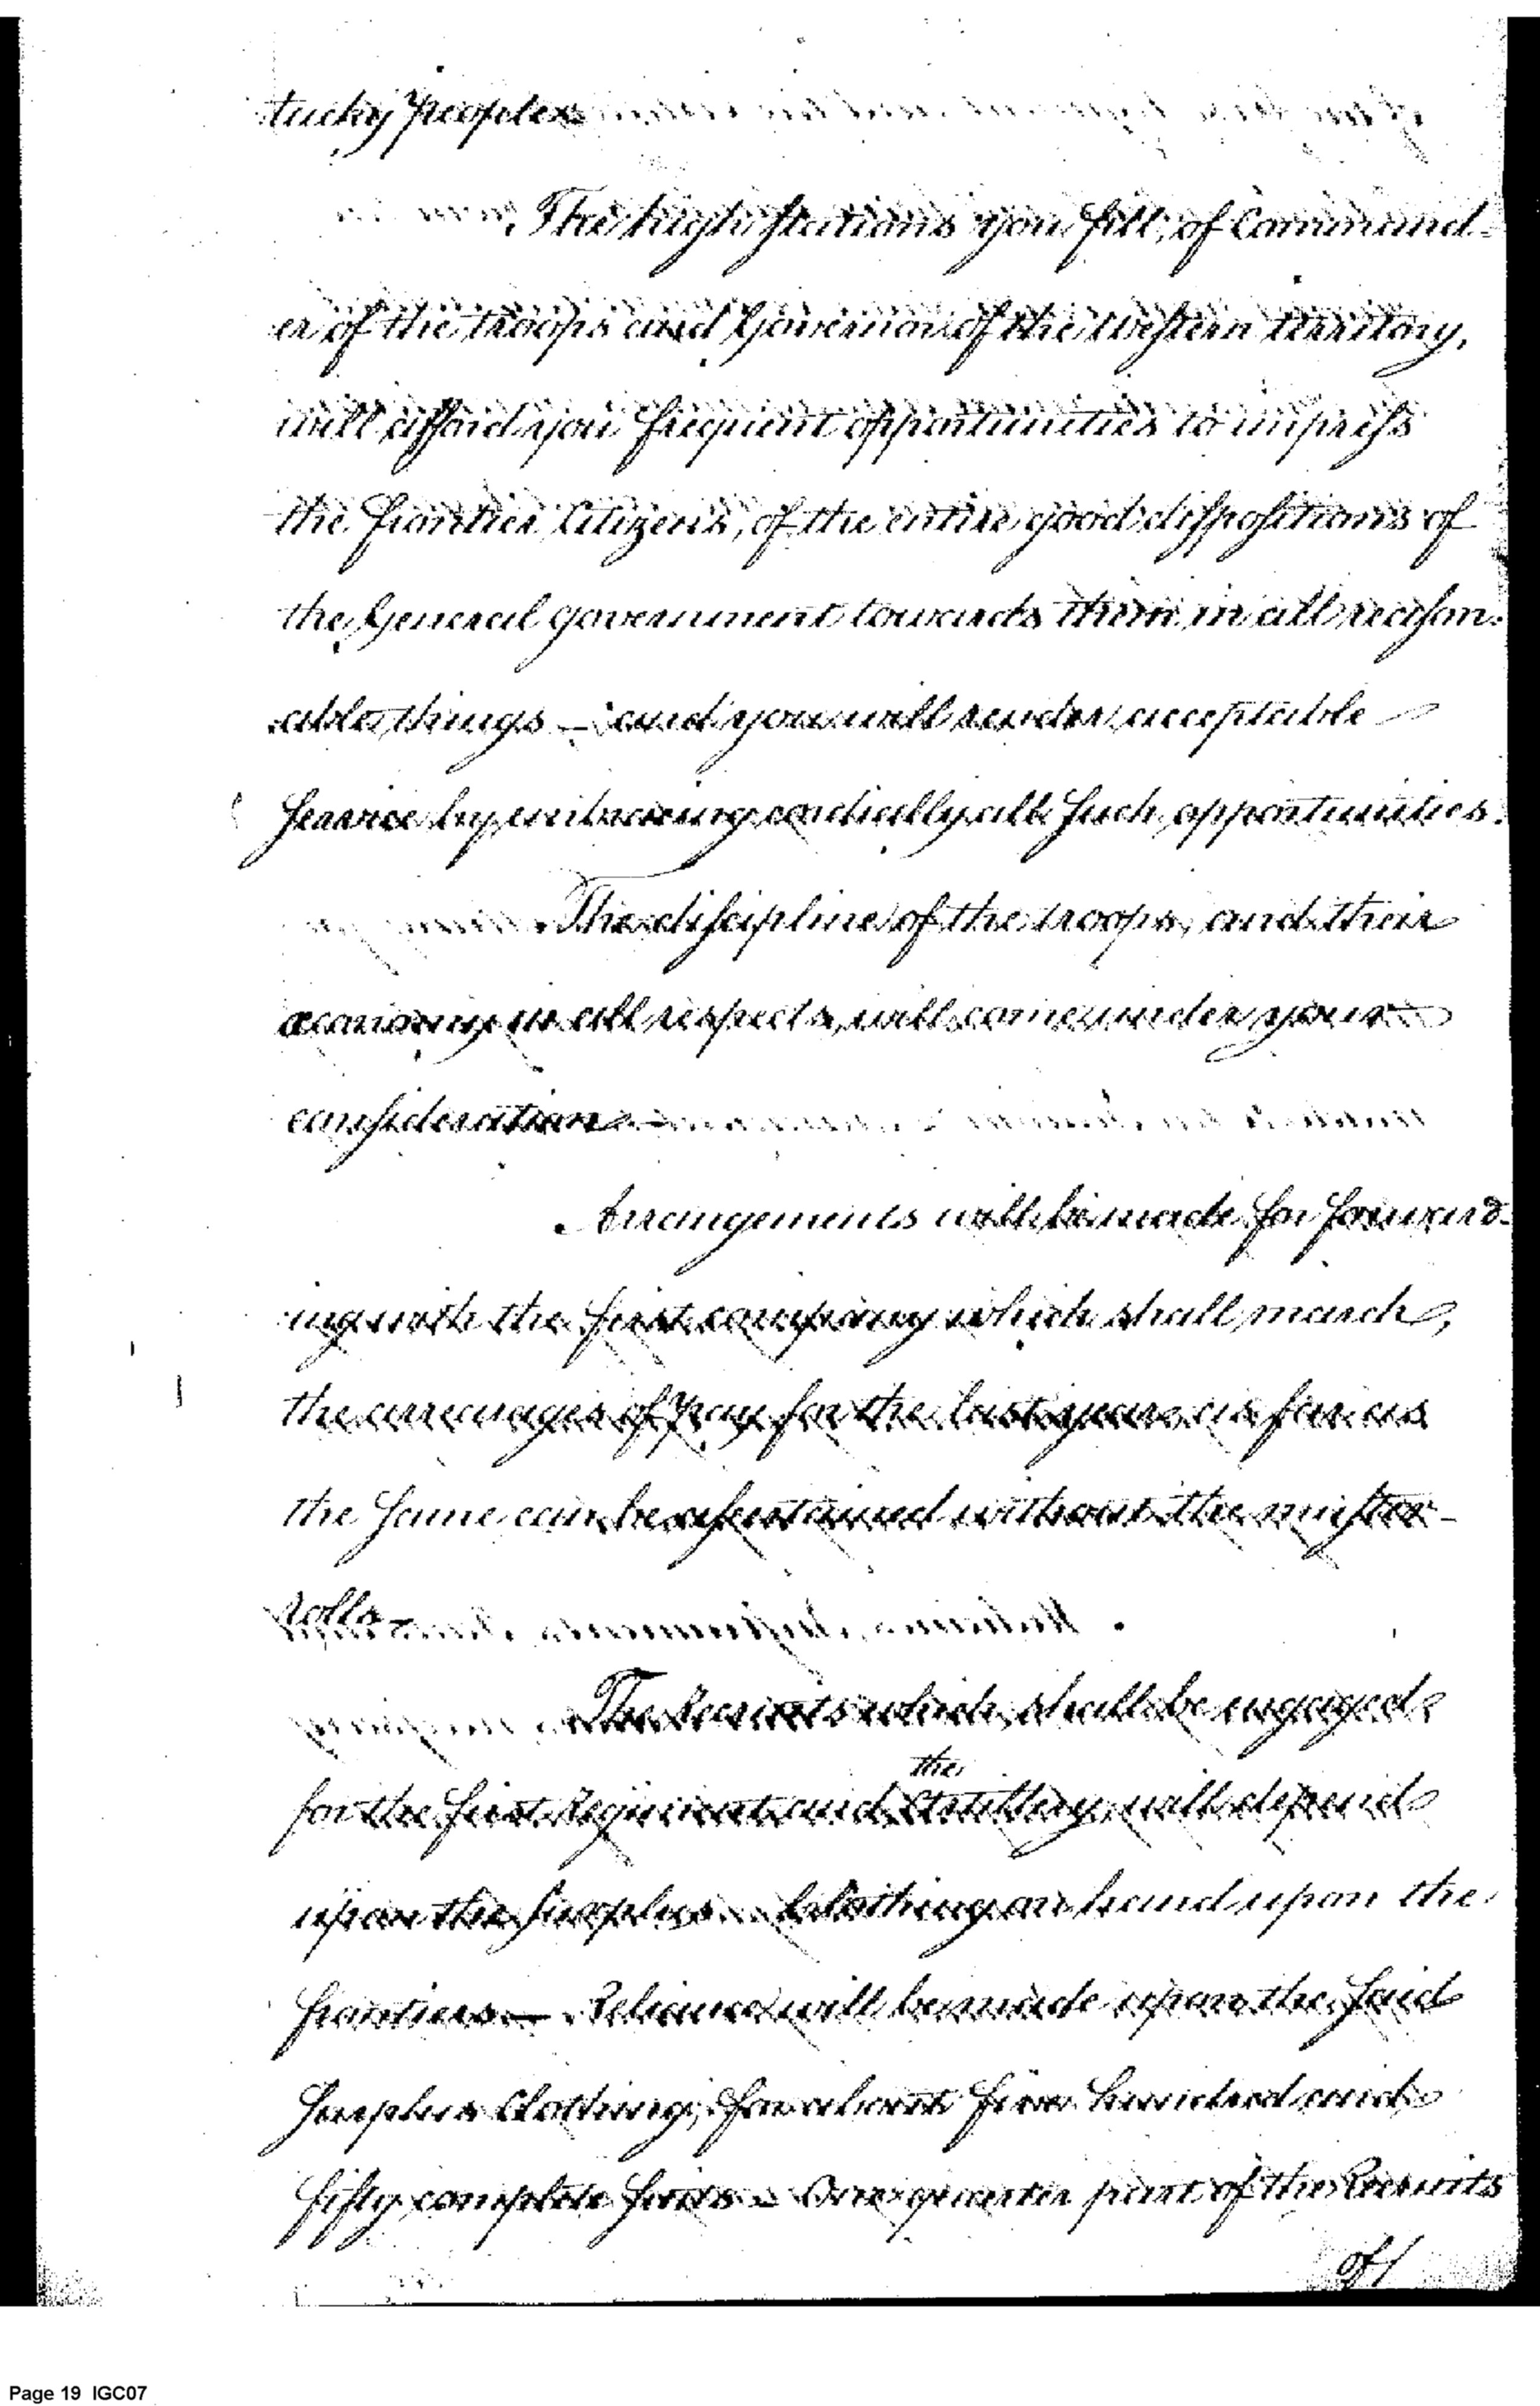 tucky people.
The high stations you fill, of Command-
er of the troops and Governor of the Western territory,
will afford you frequent opportunities to impress
the frontier Citizens, of the entire good dispositions of
the General government towards them in all reason-
able things — and you will render acceptable
service by embracing cordially all such opportunities.
The discipline of the troops, and their
œconomy in all respects, will come under your
consideration —
Arrangements will be made for forward-
ing with the first company which shall march,
the arrearages of pay for the last year as far as
the same can be ascertained without the muster-
rolls —
The Recruits which shall be engaged
the
for the first Regiment and Artillery, will depend
upon the surplus Clothing on hand upon the
frontiers — Reliance will be made upon the said
surplus Clothing, for about five hundred and
fifty complete suits — One quarter part of the Recruits
of/
Page 19 IGC07